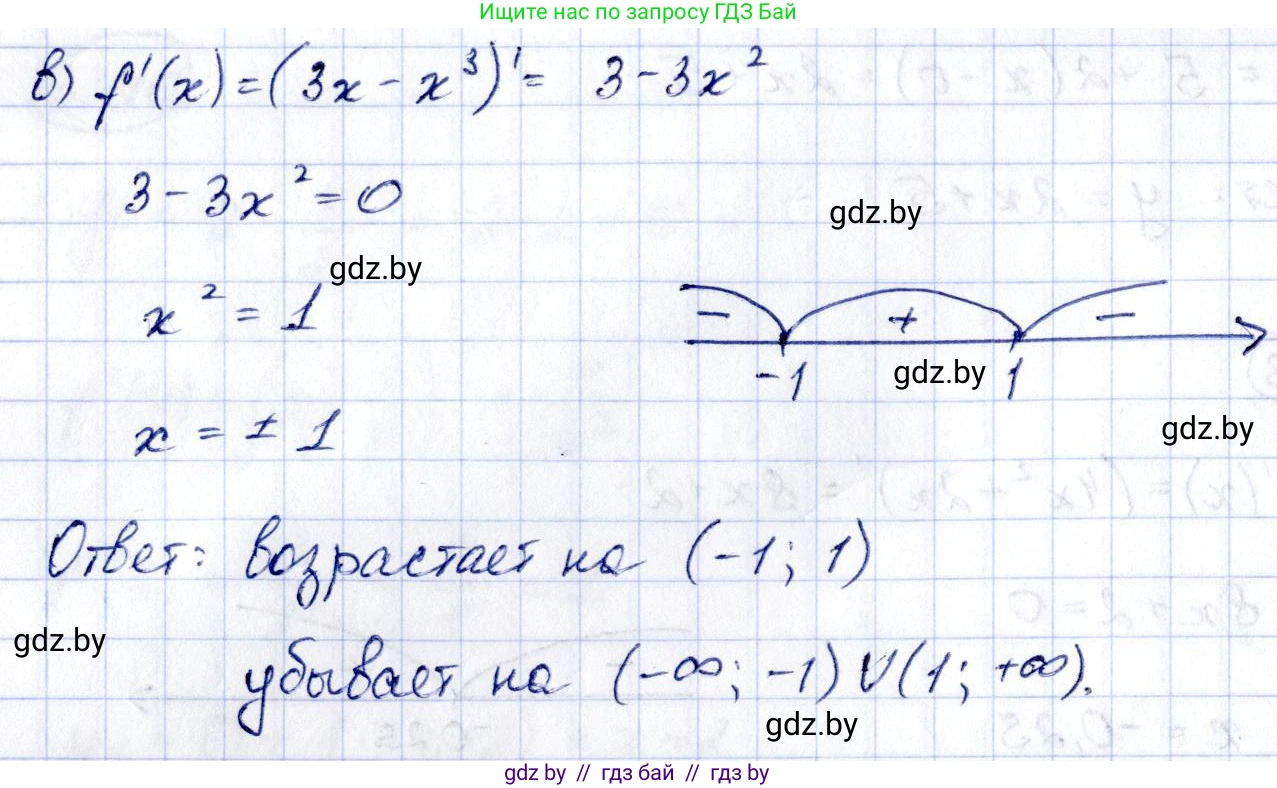 Ищите нас по запросу ГДЗ Бай
в) f'(x) = (3x - x³)' = 3 - 3x²
3 - 3x² = 0
gdz.by
gdz.by
x² = 1
- + -
-1 gdz.by 1
gdz.by
x = ± 1
Ответ: возрастает на (-1; 1)
gdz.by
убывает на (-∞; -1) ∪ (1; +∞).
gdz.by
gdz.by // гдз бай // гдз by